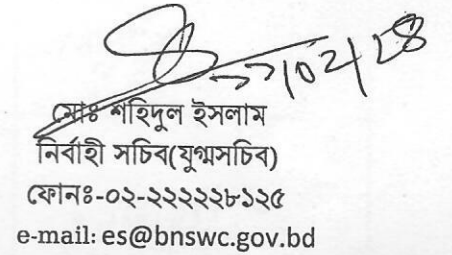 মোঃ শহিদুল ইসলাম
নির্বাহী সচিব(যুগ্মসচিব)
ফোনঃ-০২-২২২২২৮১২৫
e-mail: es@bnswc.gov.bd